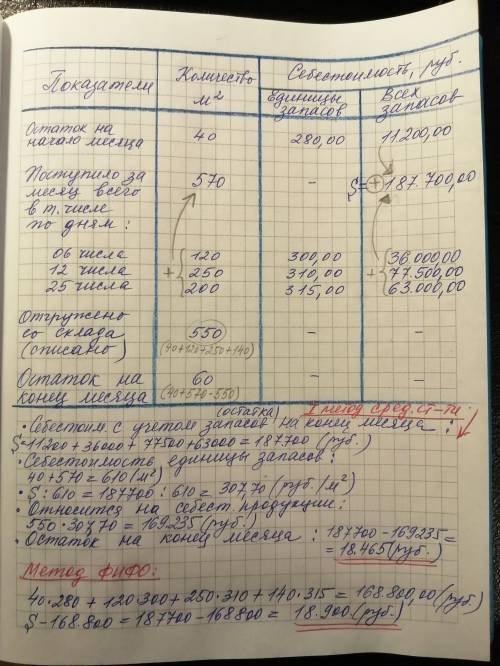 Показатели
Количество
м²
Себестоимость, руб.
Единицы
запасов
Всех
запасов
Остаток на
начало месяца
40
280,00
11.200,00
Поступило за
месяц всего
в т. числе
по дням:
570
-
S=+187.700,00
06 числа
120
300,00
36.000,00
12 числа
+
250
310,00
+
77.500,00
25 числа
200
315,00
63.000,00
Отгружено
со склада
(списано)
550
(40+120+250+140)
-
-
Остаток на
конец месяца
60
(40+570-550)
-
-
(оставка)
I метод сред. ст-ти
• Себестоим. с учетом запасов на конец месяца:
S=11200+36000+77500+63000=187.700 (руб.)
• Себестоимость единицы запасов:
40+570=610 (м²)
• S:610=187700:610=307,70 (руб./м²)
• Относится на себест. продукции:
550·307,70=169235 (руб.)
• Остаток на конец месяца: 187700-169235=
=18.465 (руб.)
Метод ФИФО:
40·280+120·300+250·310+140·315=168.800,00 (руб.)
S-168.800=187700-168800= 18.900 (руб.)